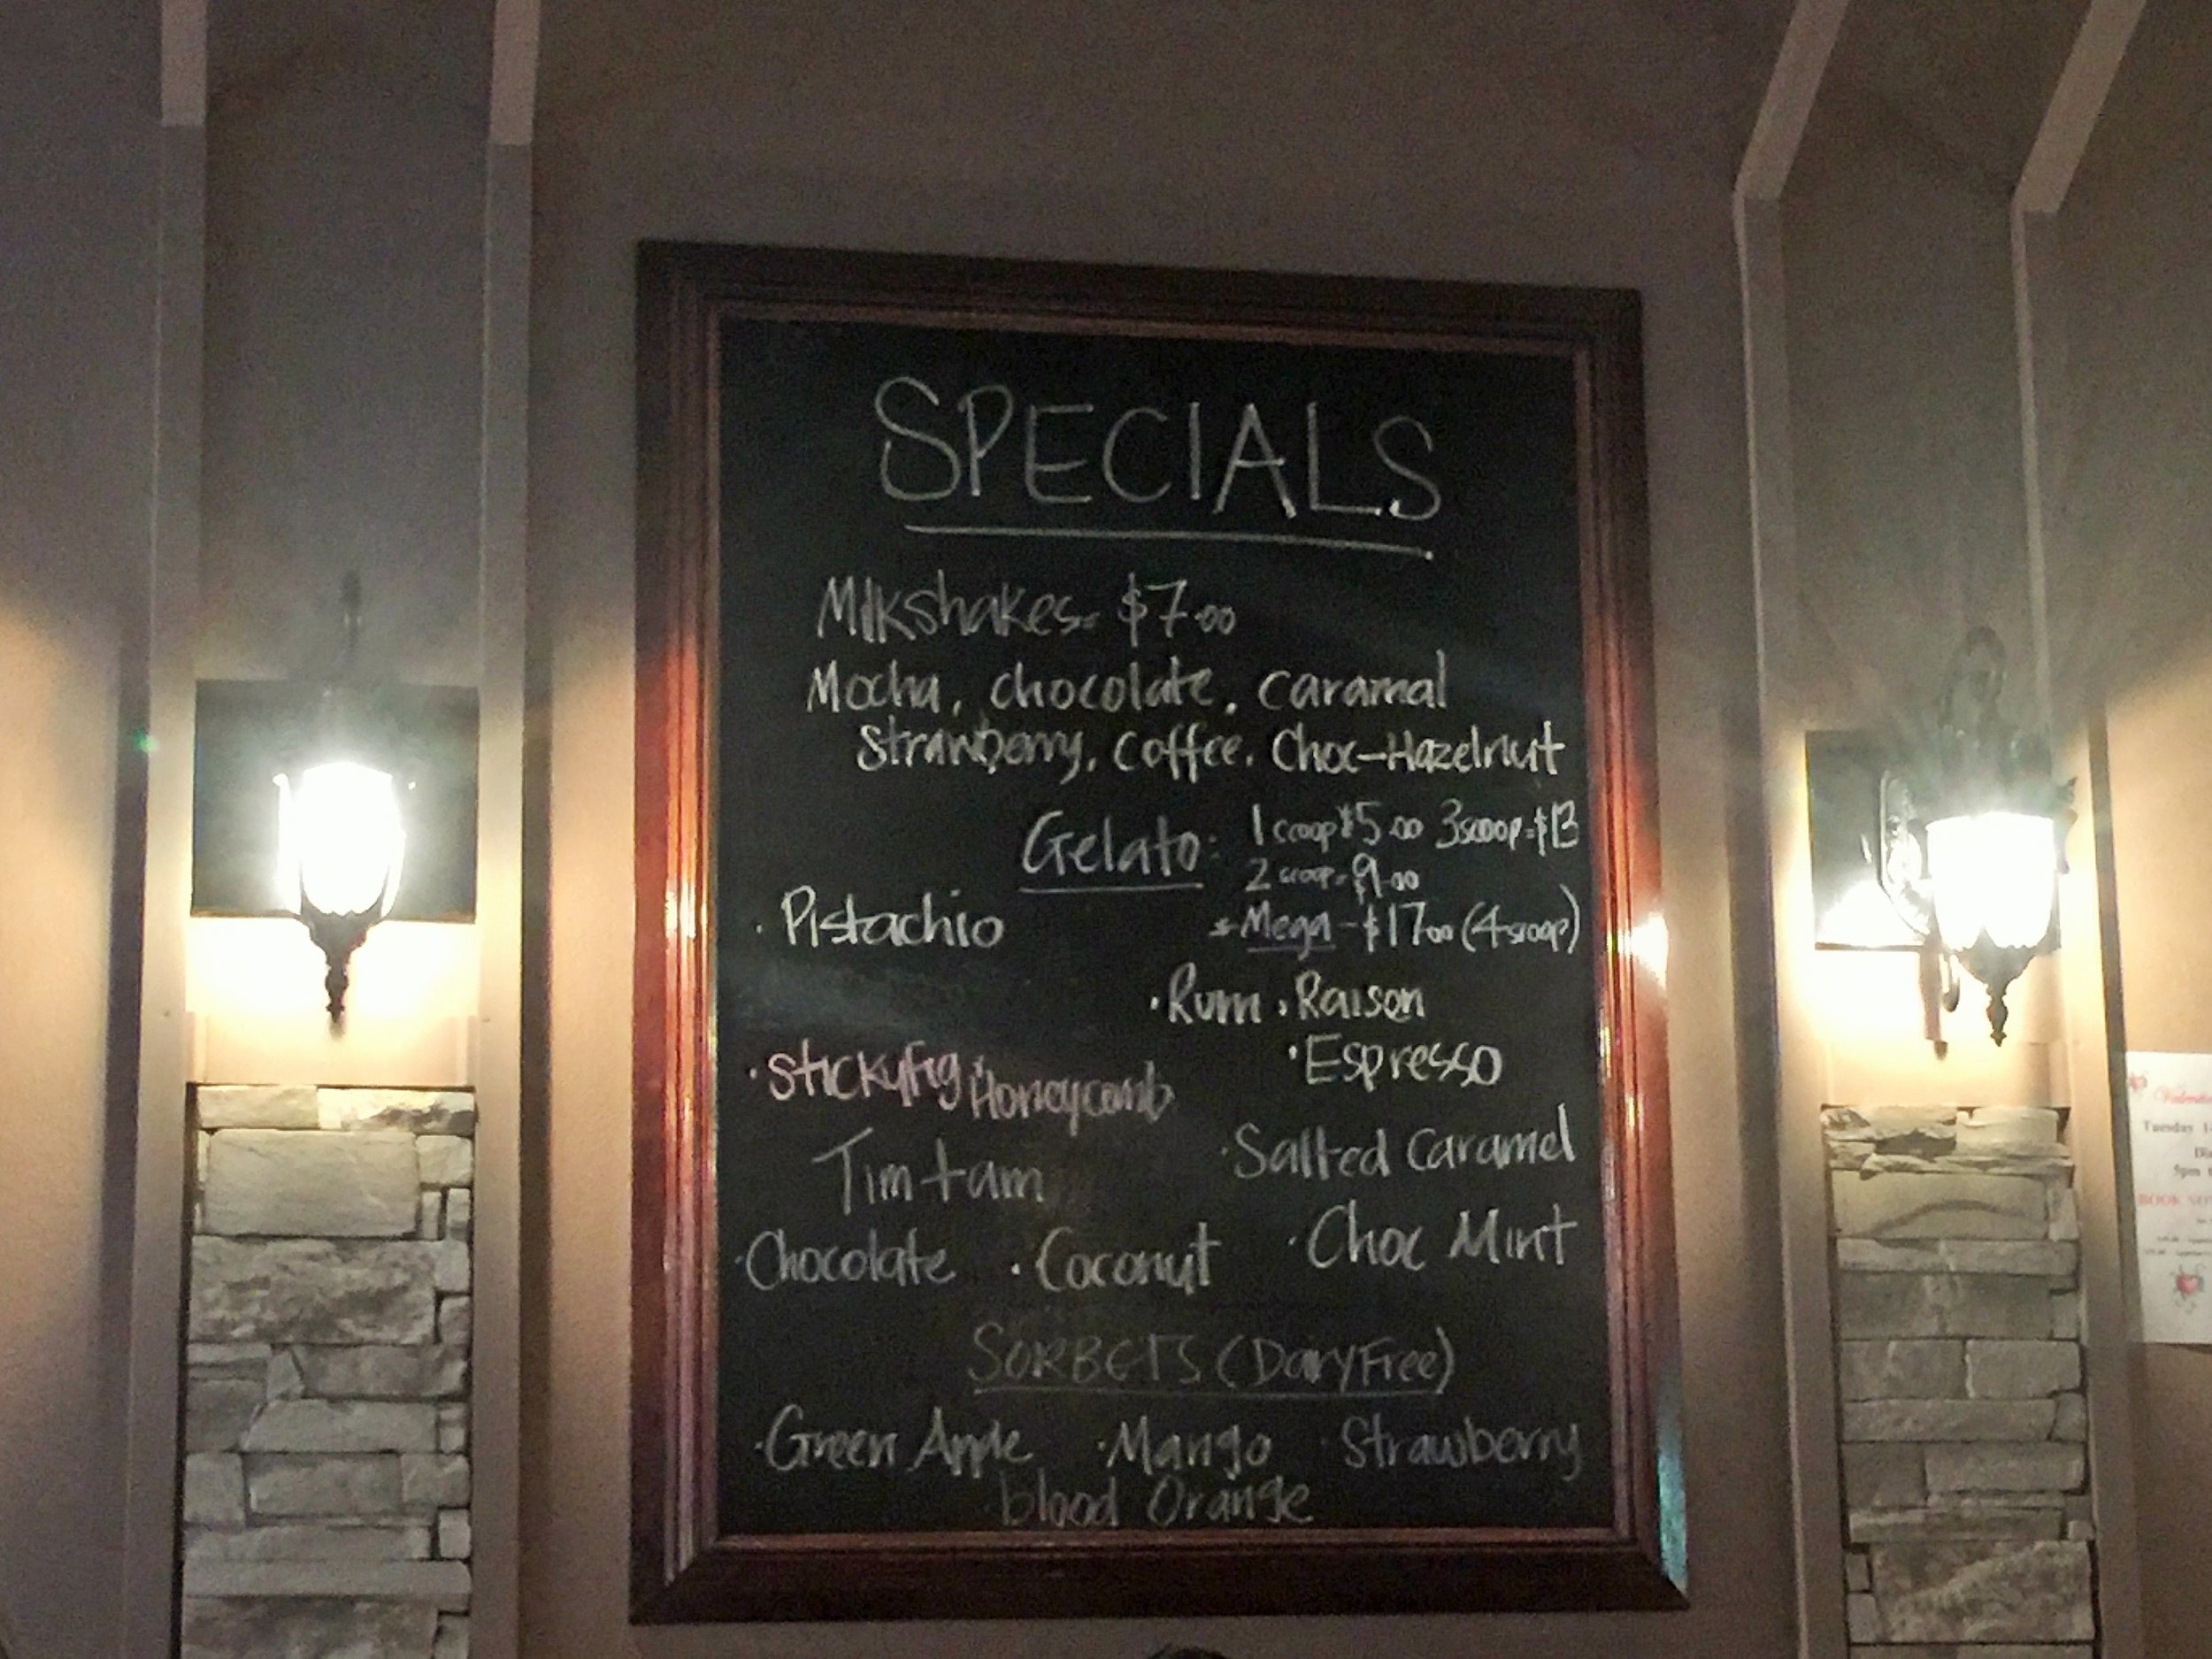 SPECIALS
Milkshakes- $7.00
Mocha, chocolate, caramal
Strawberry, coffee, Choc-Hazelnut
Gelato: 1 scoop $5.00 3 scoop=$13
2 scoop-$9.00
· Pistachio
* Mega - $17.00 (4 scoop)
· Rum , Raison
· Espresso
· Stickyfig & Honeycomb
Tim tam
· Salted Caramel
· Chocolate · Coconut · Choc Mint
SORBETS (DairyFree)
· Green Apple · Mango · Strawberry
blood Orange
Tuesday
5pm
BOOK